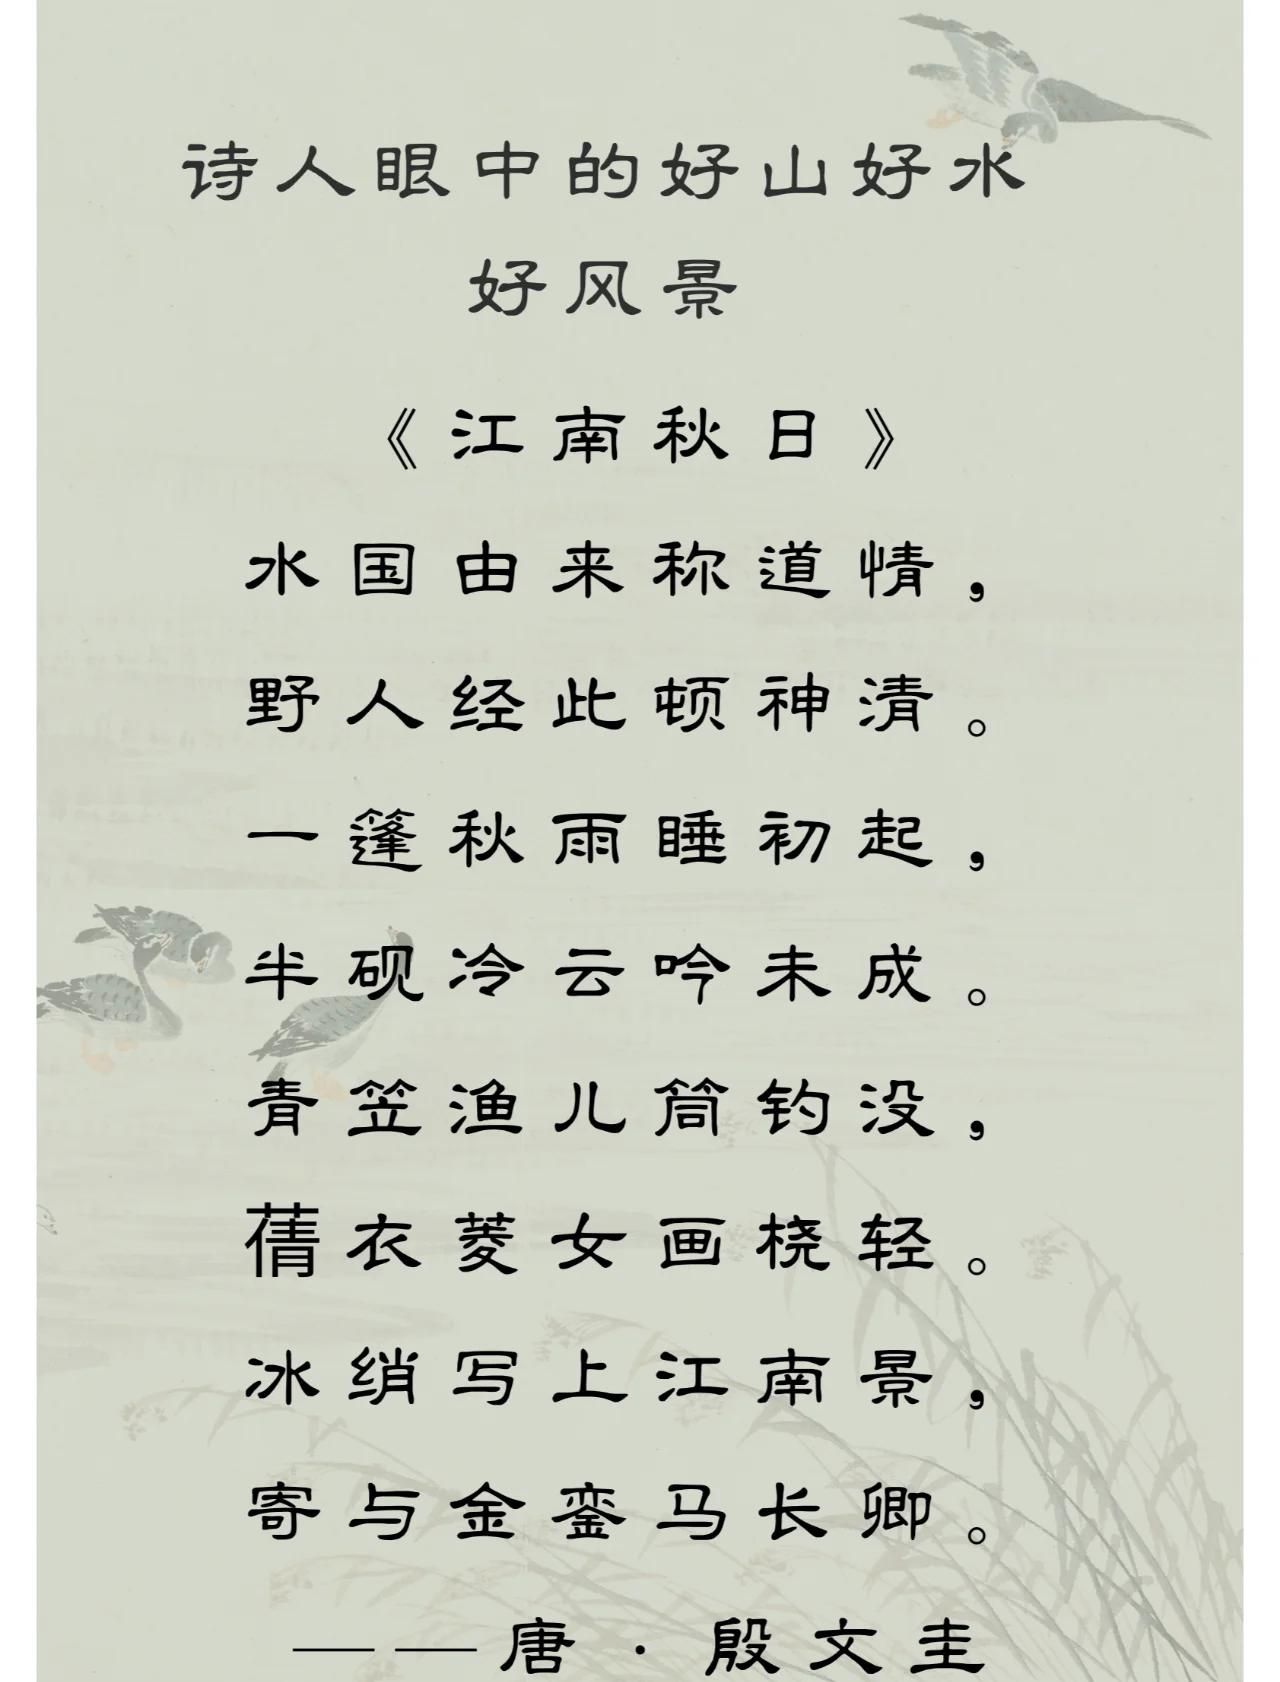 诗人眼中的好山好水
好风景
《江南秋日》
水国由来称道情，
野人经此顿神清。
一篷秋雨睡初起，
半砚冷云吟未成。
青笠渔儿筒钓没，
蒨衣菱女画桡轻。
冰绡写上江南景，
寄与金銮马长卿。
——唐·殷文圭